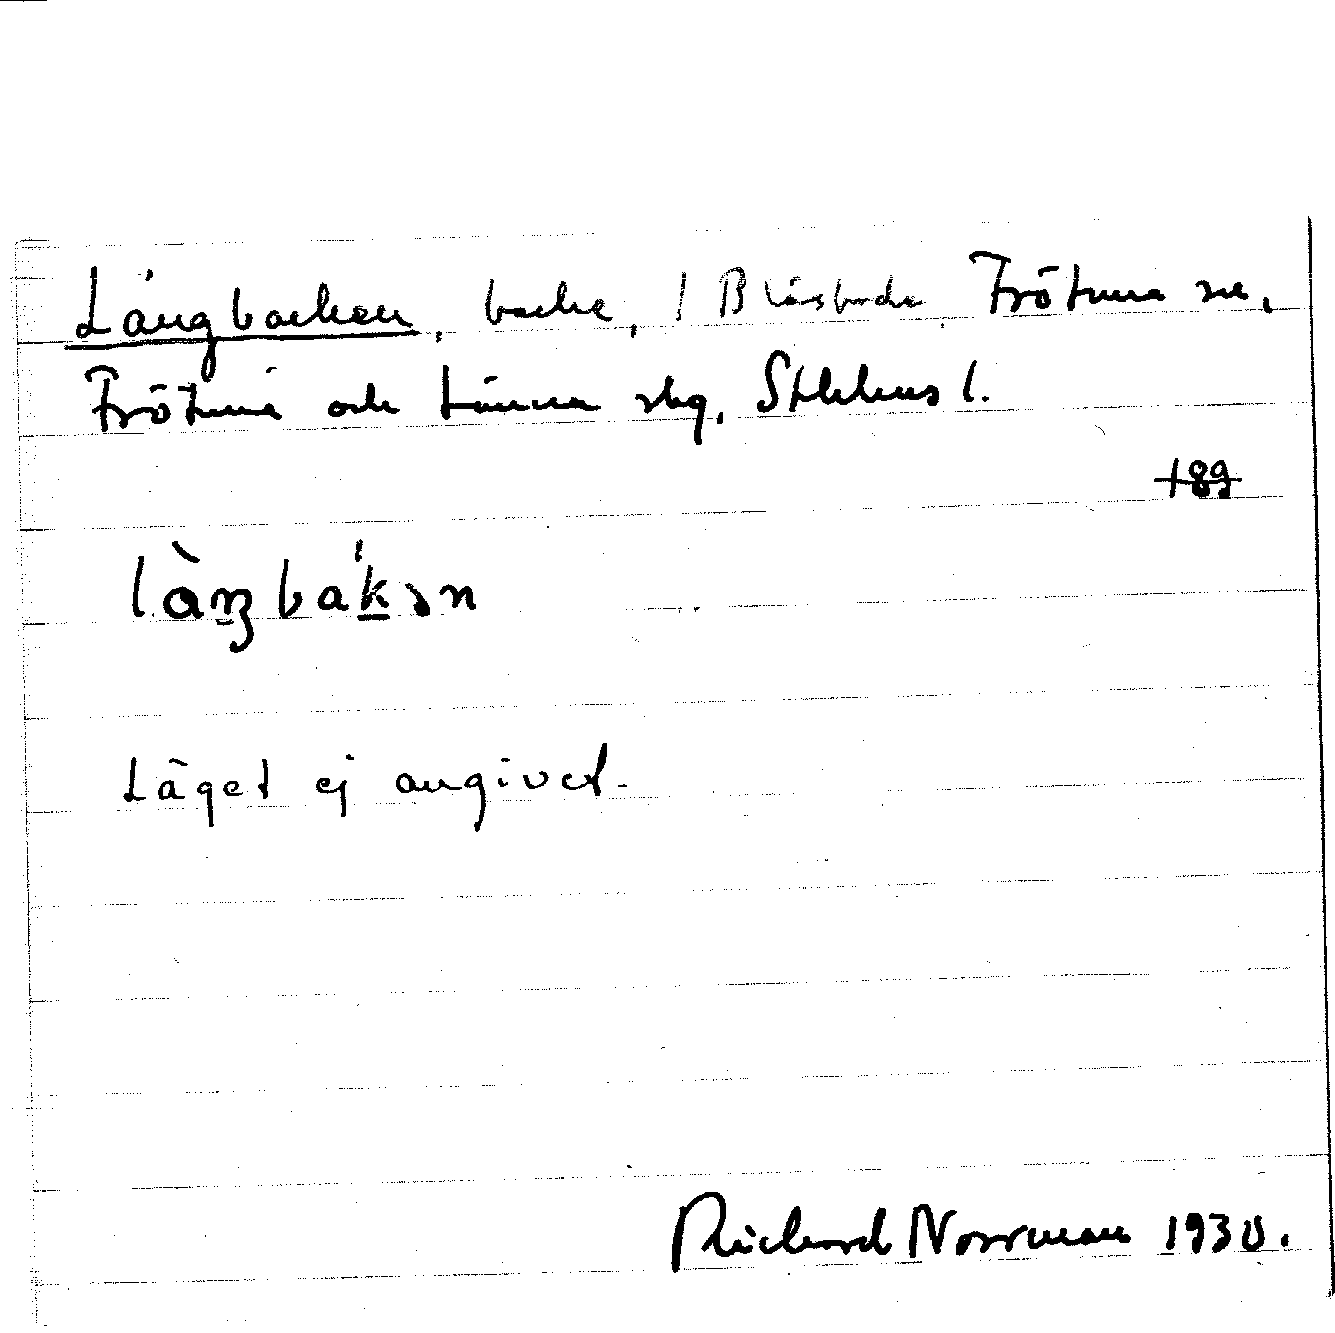 Långbacken, backe, / Blåsbacka, Frötuna sn,
Frötuna och Länna skg, Sthlms l.
189
làŋbak̲ən
Läget ej angivet.
Richard Norrman 1930.